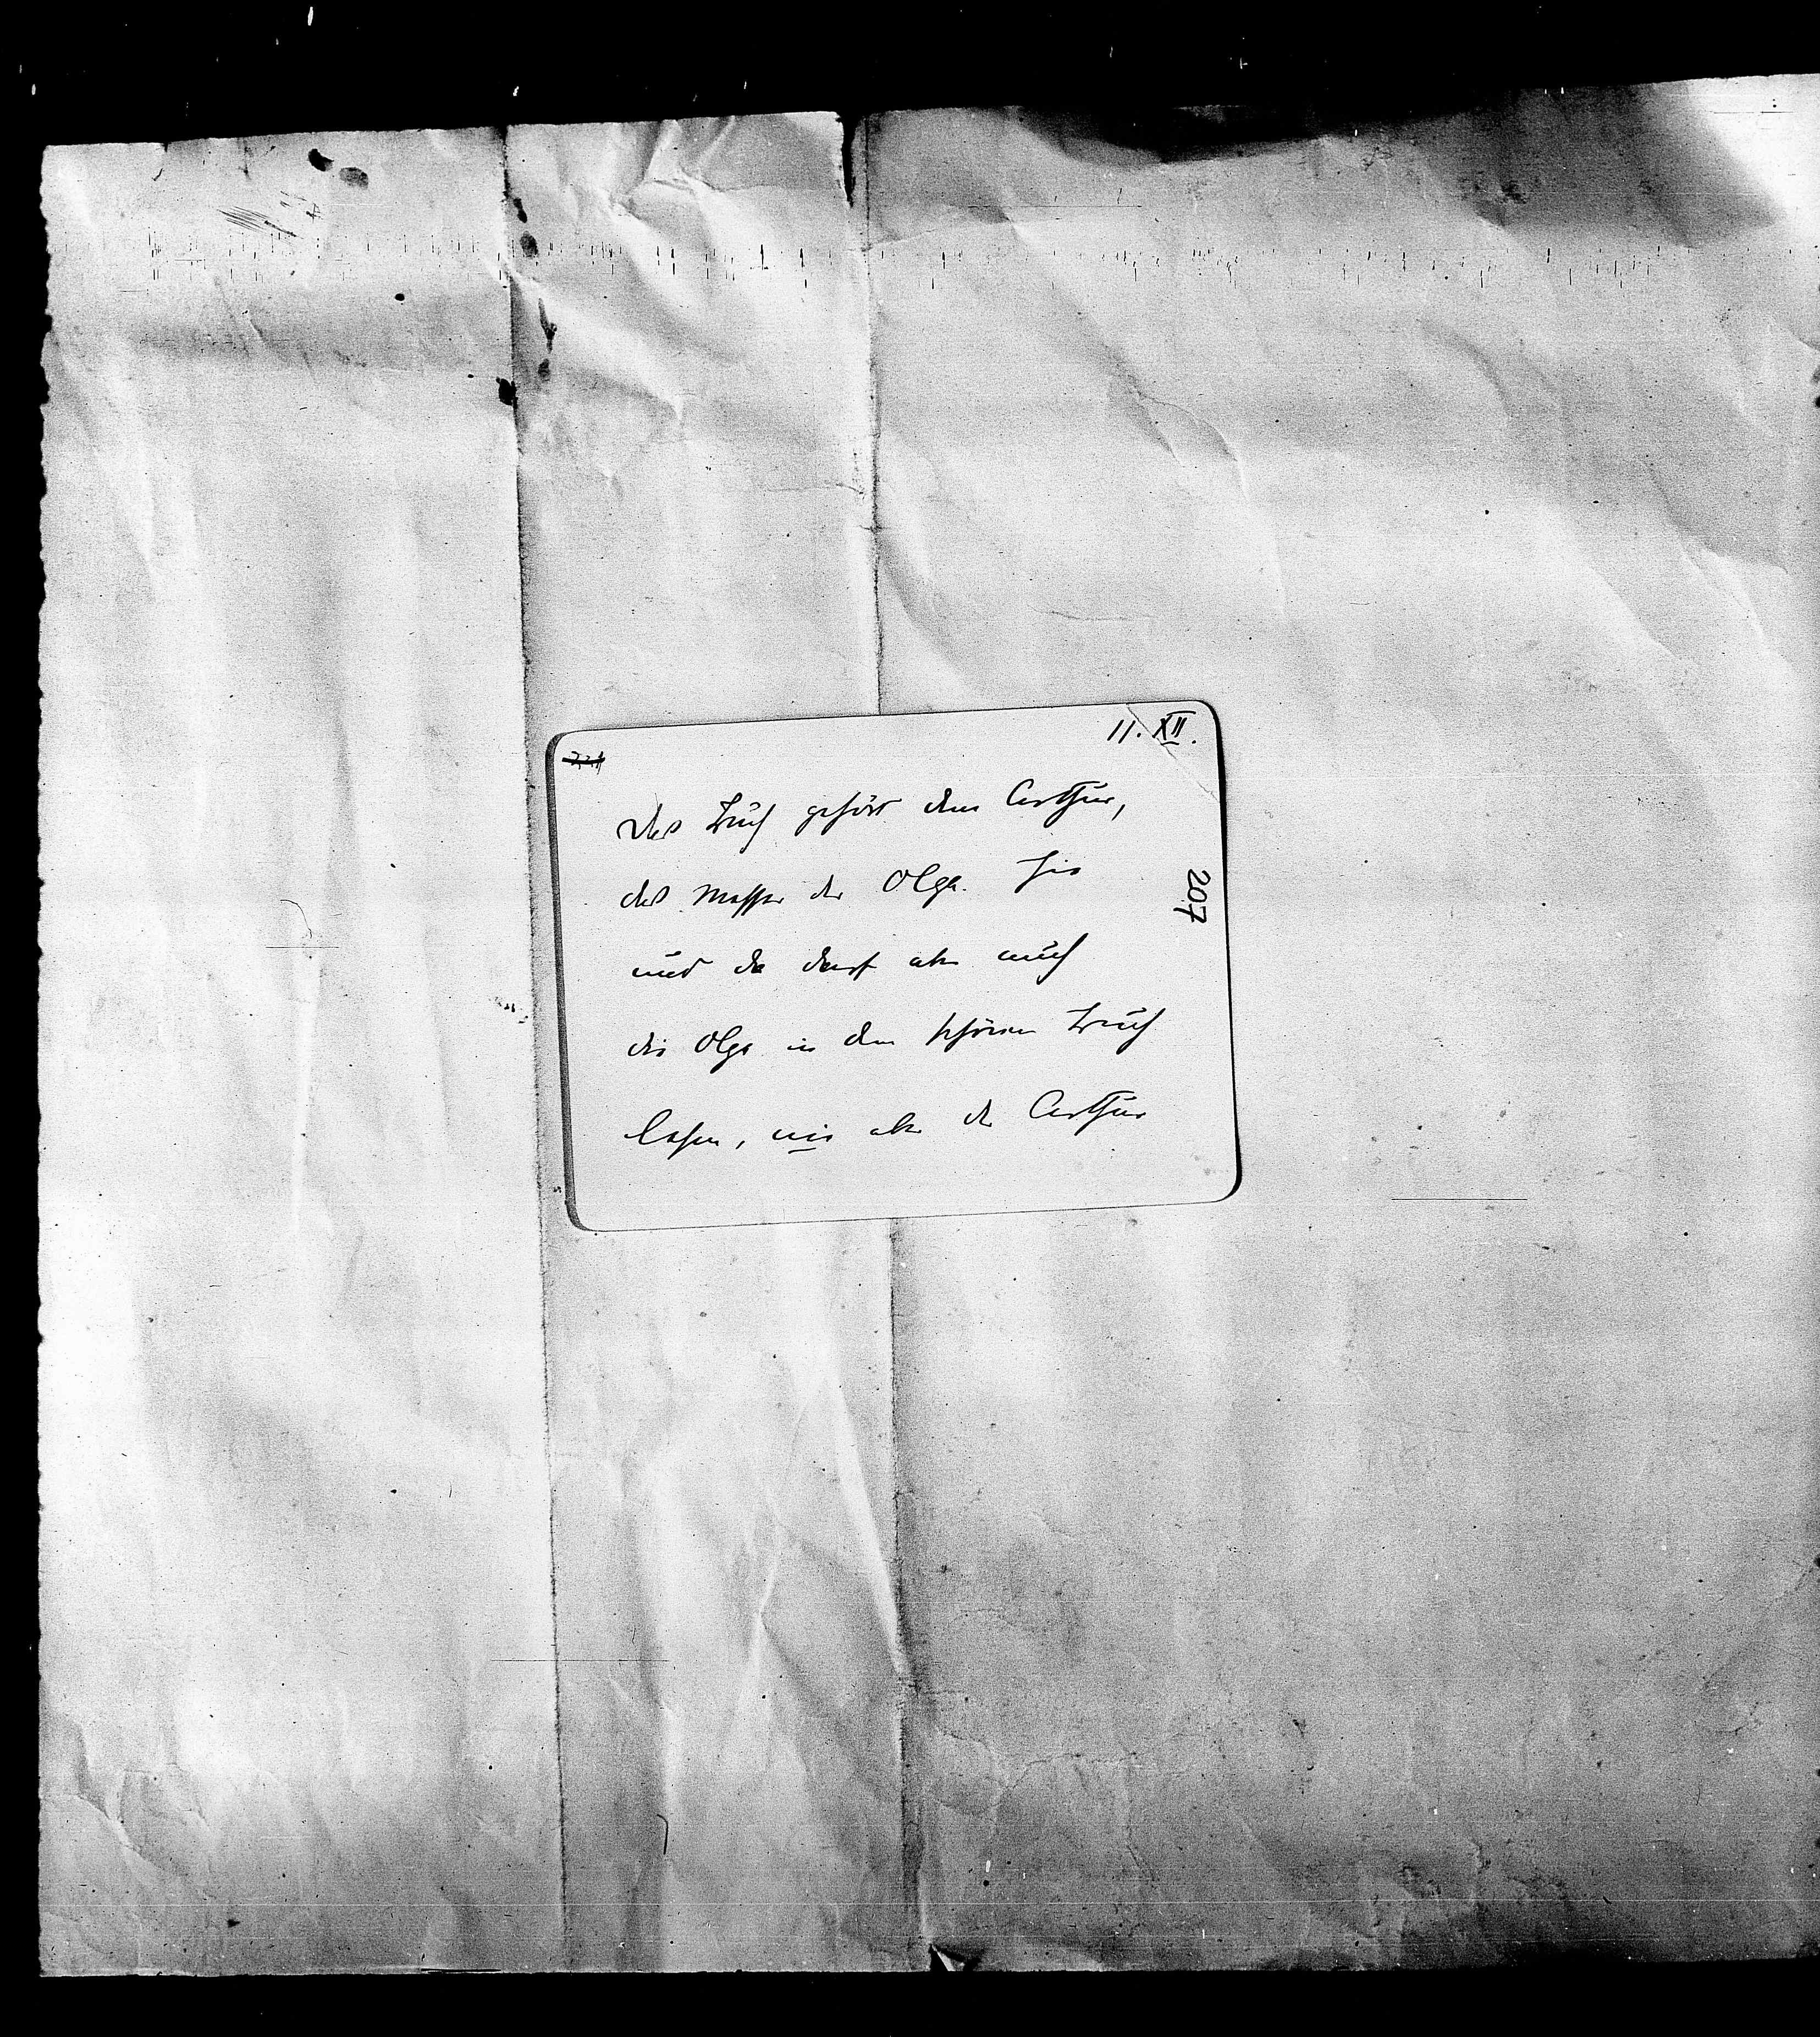 11. XII.
Das Buch gehört dem Arthur,
das Messer der Olga. Hie
und da darf aber auch
die Olga in dem schönen Buch
lesen, nie aber der Arthur
207